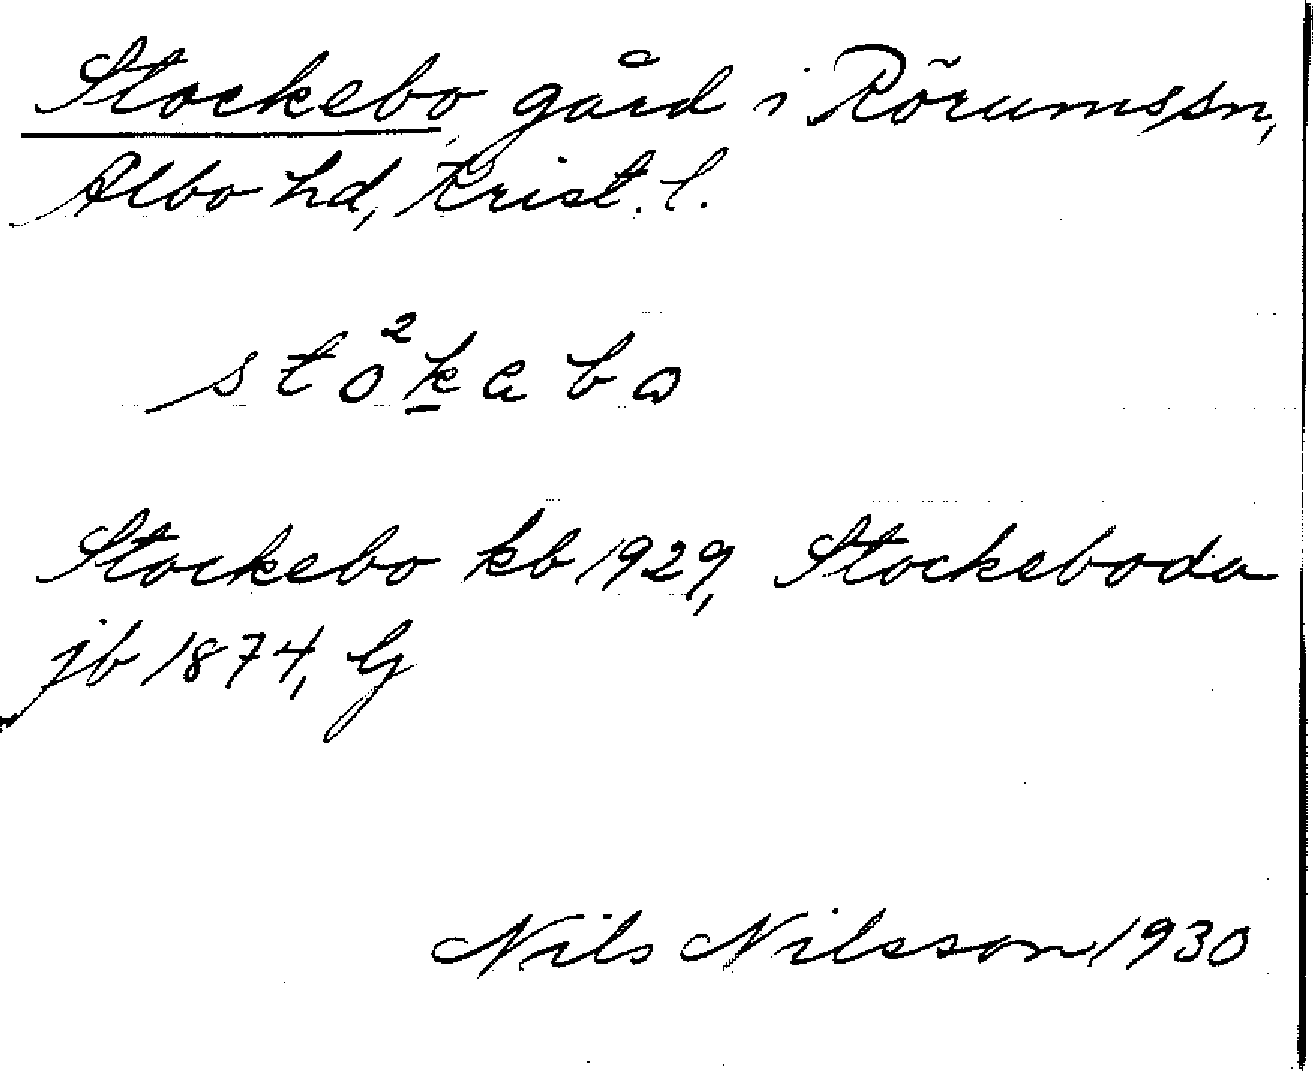 Stockebo gård i Rörums sn,
Albo hd, Krist. l.
sto²kabo
Stockebo kb 1929, Stockeboda
jb 1874, G
Nils Nilsson 1930